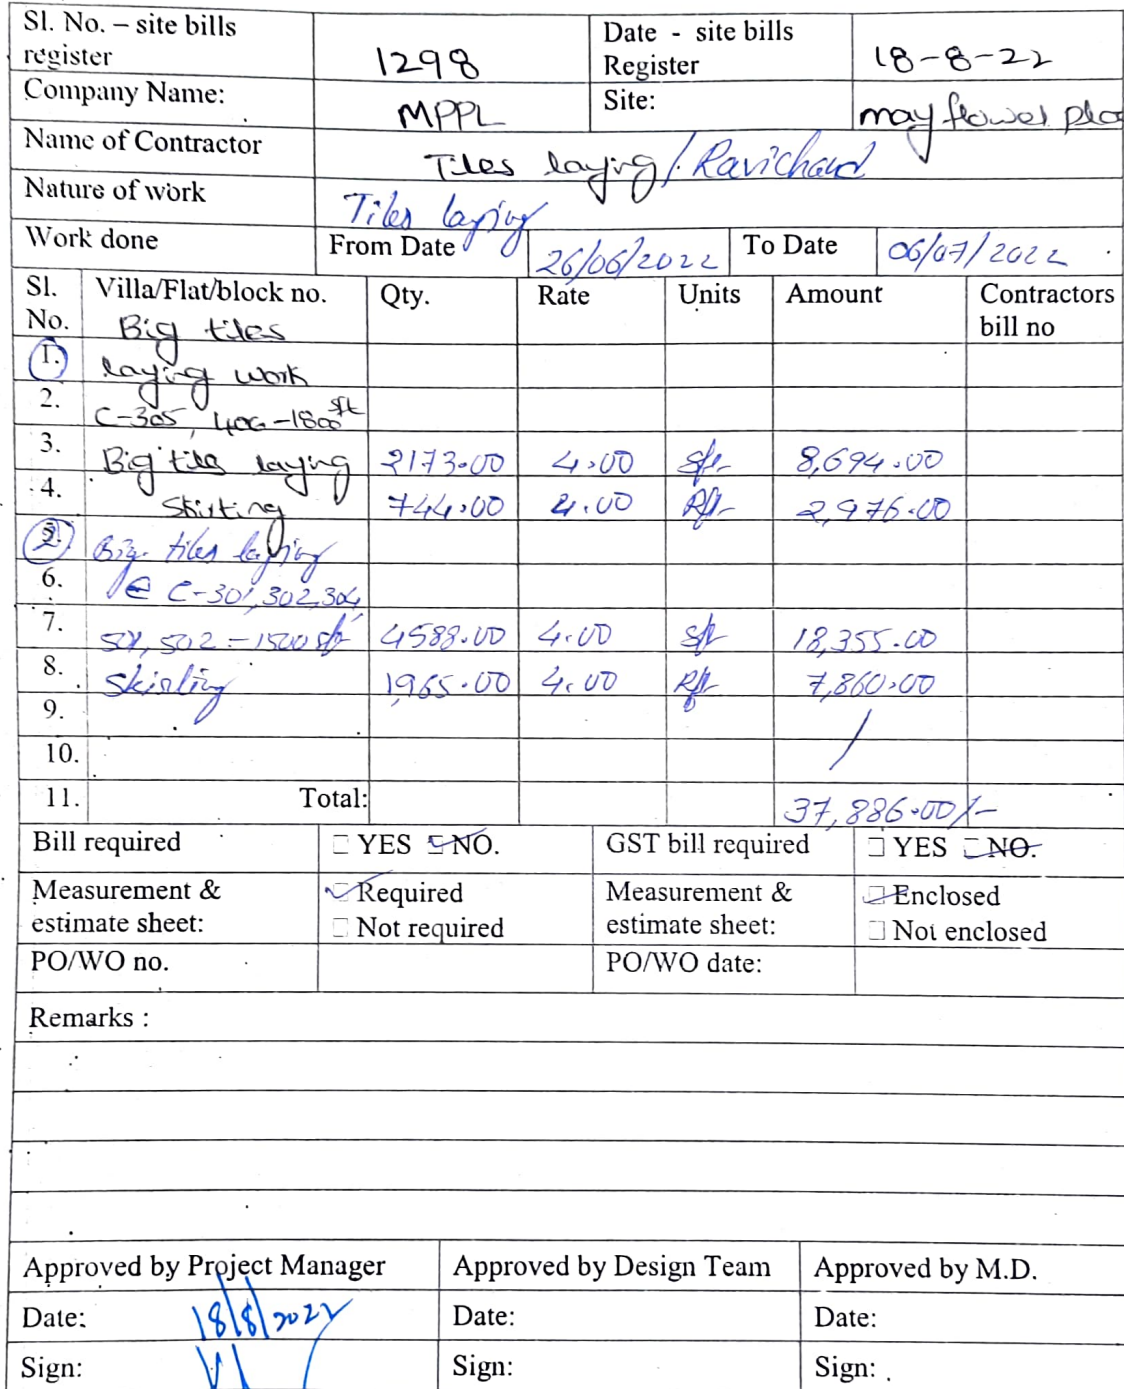 Sl. No. – site bills register 1298 Date - site bills Register 18-8-22
Company Name: MPPL Site: may flower plo
Name of Contractor Tiles laying / Ravichand
Nature of work Tiles laying
Work done From Date 26/06/2022 To Date 06/07/2022
Sl. No. Villa/Flat/block no. Qty. Rate Units Amount Contractors bill no
Big tiles
1. laying work
2. C-305, 406-1800 sft
3. Big tiles laying 2173.00 4.00 sft 8,694.00
4. Skirting 744.00 4.00 Rft 2,976.00
2. Big tiles laying
6. @ C-301,302,304,
7. 501, 502 = 1500 sft 4588.00 4.00 sft 18,355.00
8. Skirting 1965.00 4.00 Rft 7,860.00
9.
10.
11. Total: 37,886.00/-
Bill required YES NO. GST bill required YES NO.
Measurement & estimate sheet: Required Not required Measurement & estimate sheet: Enclosed Not enclosed
PO/WO no. PO/WO date:
Remarks :
Approved by Project Manager Approved by Design Team Approved by M.D.
Date: 18/8/2022 Date: Date:
Sign: Sign: Sign: